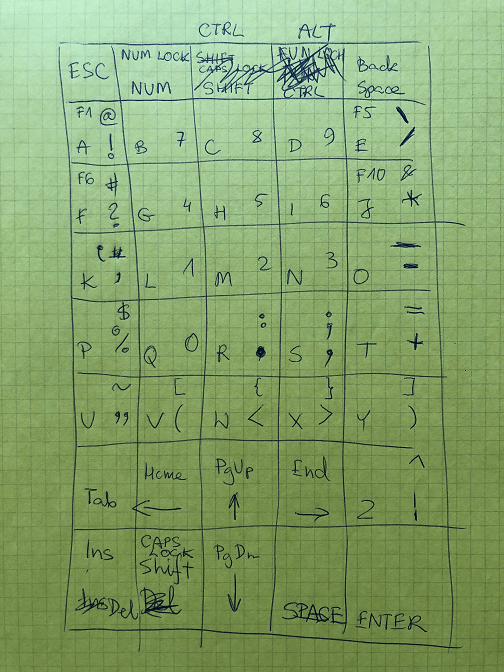 CTRL ALT
ESC NUM LOCK NUM SHIFT CAPS LOCK SHIFT CTRL Back Space
F1 @ F5 \
A ! B 7 C 8 D 9 E /
F6 # F10 &
F ? G 4 H 5 I 6 J *
K ' L 1 M 2 N 3 O _ -
$ : ; =
P % Q 0 R . S , T +
~ [ { } ]
U " V ( W < X > Y )
Home PgUp End ^
Tab ← ↑ → Z |
Ins CAPS LOCK Shift PgDn
Del ↓ SPACE ENTER